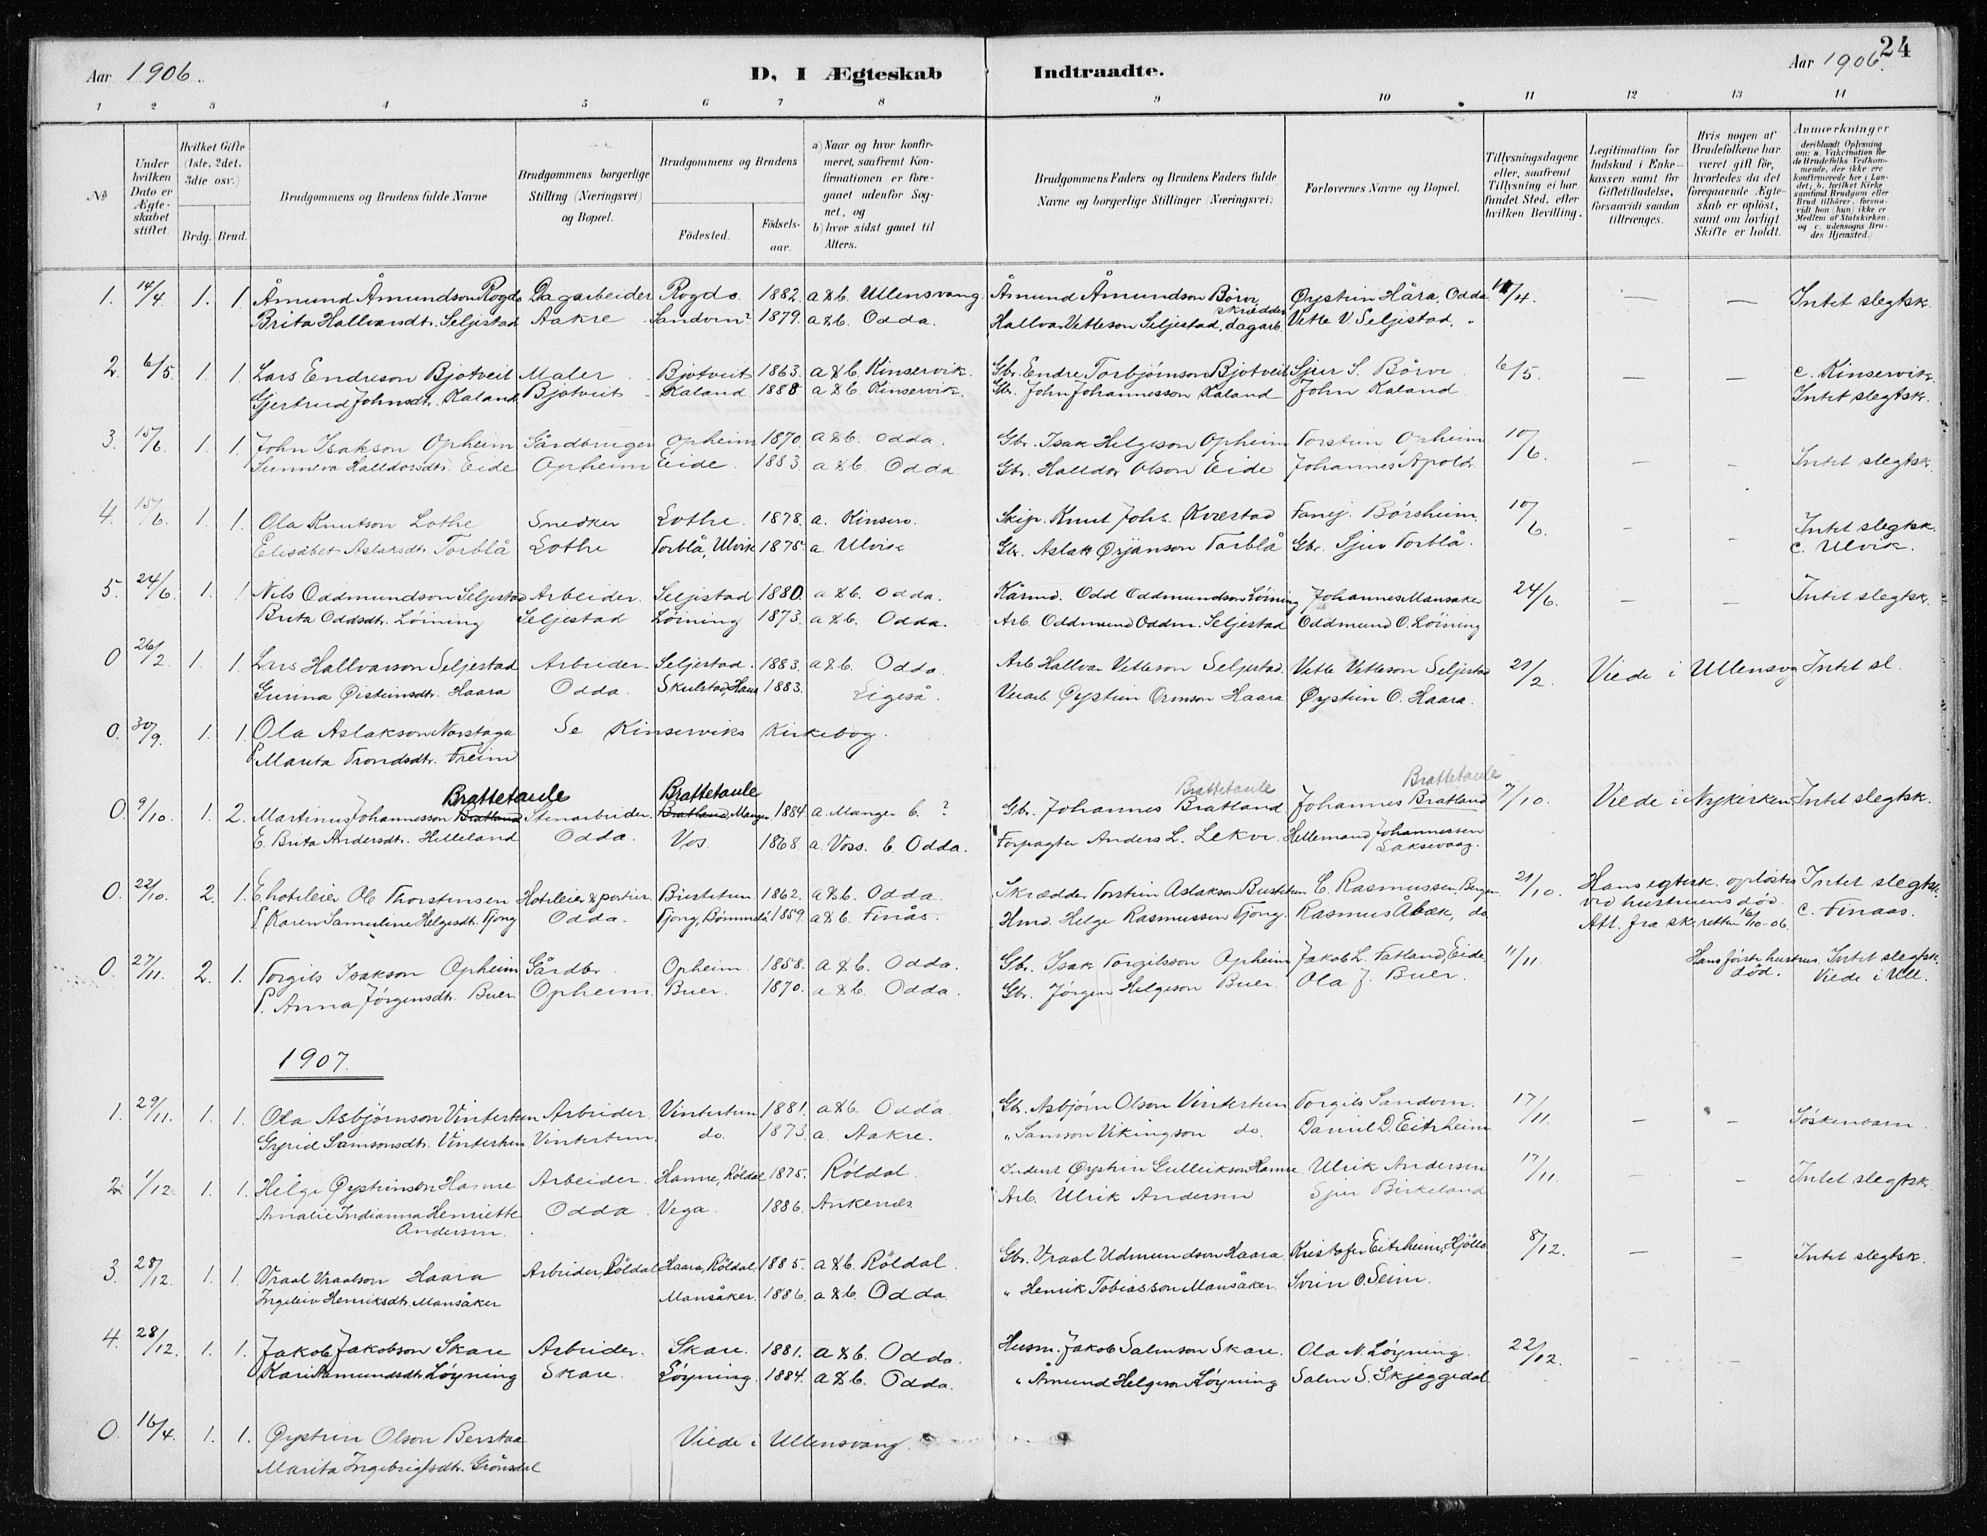 24
Aar 1906.
D, I Ægteskab Indtraadte.
Aar 1906.
1 2 3 4 5 6 7 8 9 10 11 12 13 14
No
Under hvilken Dato er Ægteskabet stiftet.
Hvilket Gifte (1ste, 2det, 3die osv.)
Brdg. Brud.
Brudgommens og Brudens fulde Navne
Brudgommens borgerlige Stilling (Næringsvei) og Bopæl.
Brudgommens og Brudens
Fødested.
Fødselsaar.
a) Naar og hvor konfirmeret, saafremt Konfirmationen er foregaaet udenfor Sognet, og
b) hvor sidst gaaet til Alters.
Brudgommens Faders og Brudens Faders fulde Navne og borgerlige Stillinger (Næringsvei)
Forlovernes Navne og Bopæl.
Tillysningsdagene eller, saafremt Tillysning ei har fundet Sted, efter hvilken Bevilling.
Legitimation for Indskud i Enkekassen samt for Giftetilladelse, forsaavidt saadan tiltrænges.
Hvis nogen af Brudefolkene har været gift før, hvorledes da det foregaaende Ægteskab er opløst, samt om lovligt Skifte er holdt.
Anmerkninger
deriblandt Oplysning om: a. Vakcination for de Brudefolks Vedkommende, der ikke ere konfirmerede her i Landet; b. hvilket Kirkesamfund Brudgom eller Brud tilhører, forsaavidt han (hun) ikke er Medlem af Statskirken, og c. udensogns Brudes Hjemsted.
1. 14/4. 1. 1. Åmund Åmundson Rogde Dagarbeider Rogde. 1882. a&b. Ullensvang. Åmund Åmundson Børve, skrædder Øystein Håra, Odda 14/4. — — Intet slegtsk.
Brita Hallvardsdtr. Seljestad Aakre Sandven? 1879. a&b. Odda. Hallvar Vetteson Seljestad, dagarb. Vette V. Seljestad. "
2. 6/5. 1. 1. Lars Endreson Bjotveit Maler Bjotveit 1863. a&b. Kinservik. Gbr. Endre Torbjørnson Bjotveit Sjur S. Børve 6/5. — — c. Kinservik.
Gjertrud Johnsdtr. Kaland Bjotveit Kaland 1888 a&b. Kinservik. Gbr. John Johannesson Kaland John Kaland. Intet slegtsk.
3. 15/6. 1. 1. John Isakson Opheim Gårdbruger Opheim 1870 a&b. Odda. Gbr. Isak Helgeson Opheim Torstein Opheim 10/6. — — Intet slegtsk.
Sunneva Halldorsdtr. Eide Opheim Eide. 1883. a&b. Odda. Gbr. Halldor Olson Eide Johannes Apold.
4. 15/6. 1. 1. Ola Knutson Lothe Snedker Lothe. 1878. a. Kinserv. Skip. Knut Johs. Kvestad Fanej. Børsheim. 10/6. — — Intet slegtsk.
Elisabet Aslaksdtr. Torblå Lothe Torblå, Ulvik 1875. a Ulvik Gbr. Aslak Ørjanson Torblå Gbr. Sjur Torblå. c. Ulvik.
5. 24/6. 1. 1 Nils Oddmundson Seljestad Arbeider. Seljestad 1880. a&b. Odda. Kårmd. Odd Oddmundson Løining Johannes Mansaker 24/6. — — Intet slegtsk.
Brita Oddsdtr. Løining Seljestad Løining 1873. a&b. Odda. Arb. Oddmund Oddm. Seljestad Oddmund O. Løining
0 26/2 1. 1. Lars Hallvarson Seljestad Arbeider. Seljestad. 1883. a&b. Odda. Arb. Hallvar Vetteson Seljestad. Vette Vetteson Seljestad 21/2. Viede i Ullensvg Intet sl.
Gunna Øisteinsdtr. Haara Odda. Skulstad, Haus 1883. Ligeså. Verarb. Øystein Ormson Haara Øystein O. Haara.
0. 30/9. 1. 1. Ola Aslakson Norstoga Se Kinserviks Kirkebog.
P. Marita Trondsdtr. Freim
Brattetaule Brattetaule Brattetaule Brattetaule
0. 9/10. 1. 2. Martinus Johannesson Bratland Stenarbeider. Bratland, Manger 1884. a. Manger b. ? Gbr. Johannes Bratland Johannes Bratland 7/10. Viede i Nykirken Intet slegtsk.
E. Brita Andersdtr. Helleland Odda. Vos. 1868. a. Voss. b. Odda. Forpagter Anders L. Lekve. Hellemand Johannessen Laksevaag.
0. 22/10. 2. 1. E. hoteleier Ole Thorstensen Hoteleier & portier Bustetun 1862. a&b. Odda. Skrædder Torstein Aslakson Bustetun C. Rasmussen, Bergen 21/10. Hans egtesk. opløst Intet slegtsk.
P. Karen Samueline Helgesdtr. Fjong Odda. Fjong, Bømmelø 1859. a&b. Finås. Hmd. Helge Rasmussen Fjong. Rasmus Åbæk, do ved hustruens død. c. Finaas.
Att. fra sk.retten 16/10-06.
0. 27/11. 2. 1. Torgils Isakson Opheim Gårdbr. Opheim. 1858. a&b. Odda. Gbr. Isak Torgilsson Opheim Jakob L. Tatland, Eide. 11/11. Hans første hustru død. Intet slegtsk.
P. Anna Jørgensdtr. Buer. Opheim. Buer. 1870. a&b. Odda. Gbr. Jørgen Helgeson Buer. Ola J. Buer. Viede i Ull.
1907.
1. 29/11. 1. 1. Ola Asbjørnson Vintertun Arbeider. Vintertun 1881. a&b. Odda. Gbr. Asbjørn Olson Vintertun Torgils Sandven. 17/11. — — Søskenbarn.
Gyrid Samsonsdtr. Vintertun Vintertun. do. 1873. a. Aakre. " Samson Vikingson do. Daniel D. Eitrheim
2. 1/12. 1. 1. Helge Øysteinson Hamre Arbeider. Hamre, Røldal 1875. Røldal. Inderst Øystein Gulleikson Hamre. Ulrik Andersen 17/11. — — Intet slegtsk.
Amalie Indianna Henriette Andersen. Odda. Vega. 1886. Ankenes Arb. Ulrik Andersen Sjur Birkeland
3. 28/12. 1. 1. Vraal Vraalson Haara Arbeider, Røldal Haara, Røldal. 1885. a&b. Røldal. Gbr. Vraal Udmundson Haara Kristofer Eitrheim, Hjøllo 8/12. — — Intet slegtsk.
Ingeleiv Henriksdtr. Mansåker Mansåker. 1886. a&b. Odda. " Henrik Tobiasson Mansåker. Svein O. Seim.
4. 28/12. 1. 1. Jakob Jakobson Skare Arbeider. Skare. 1881. a&b. Odda. Husm. Jakob Salmson Skare. Ola N. Løyning. 22/12. — —
Kari Aamundsdtr. Løyning Skare. Løyning. 1884. a&b. Odda. " Åmund Helgeson Løyning Salm S. Skjeggedal
0. 16/4. 1. 1. Øystein Olson Berstaa Viede i Ullensvang.
Marita Ingebrigtsdtr. Grønsdal